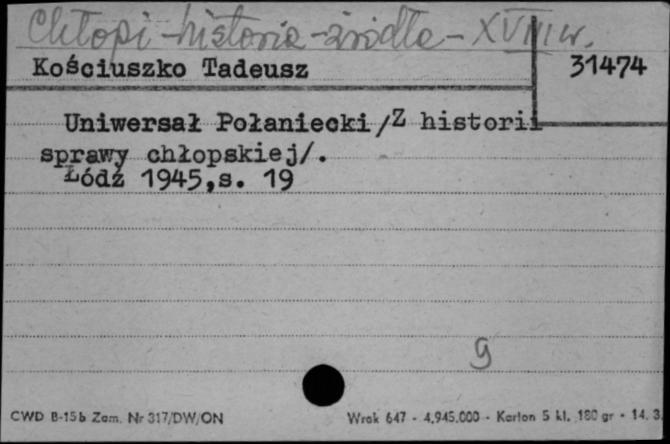 Chłopi - historia - źródła - XVIII w.
Kościuszko Tadeusz
31474
Uniwersał Połaniecki/Z historii
sprawy chłopskiej/.
Łódź 1945,s. 19
9
CWD B-15b Zam. Nr 317/DW/ON
Wrak 647 - 4.945.000 - Karton 5 kl. 180 gr - 14. 3.